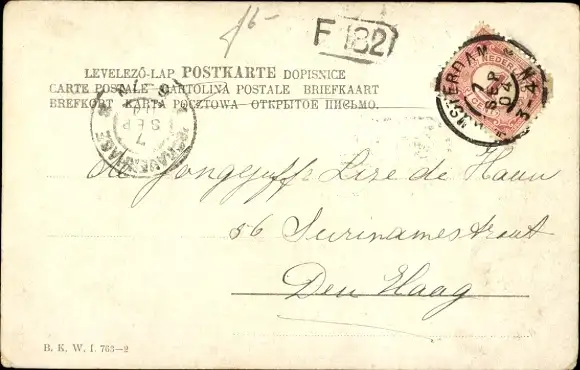 15-
F 182
LEVELEZÖ-LAP POSTKARTE DOPISNICE
CARTE POSTALE—CARTOLINA POSTALE BRIEFKAART
BREFKORT KARTA POCZTOWA—ОТКРЫТОЕ ПИСЬМО.
AMSTERDAM
7 SEP 04
3-4 N
NEDERLAND
7 SEP
'S-GRAVENHAGE
Jongejuff Lize de Haan
56 Surinamestraat
Den Haag
B. K. W. I. 763—2